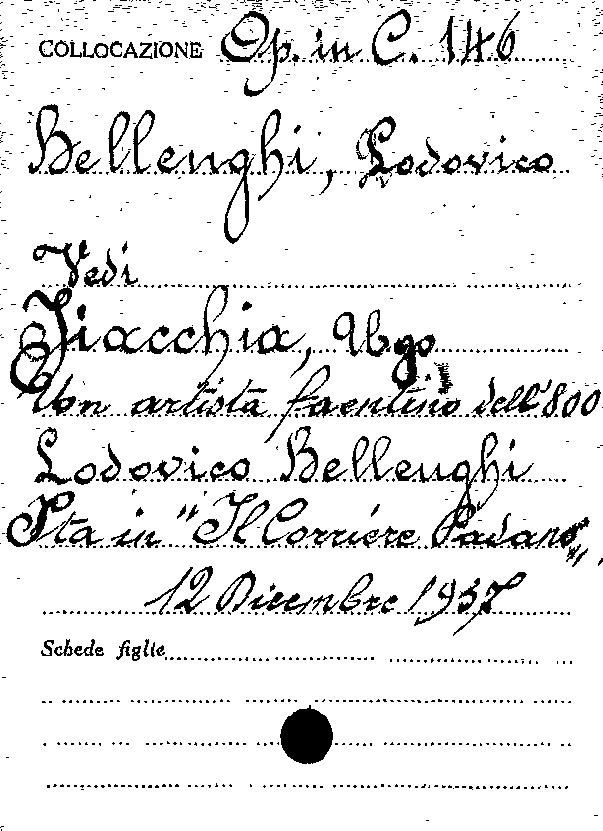 COLLOCAZIONE Op. in C. 146
Bellenghi, Lodovico
Vedi
Fiacchia, Ugo
Un artista faentino dell'800
Lodovico Bellenghi
Sta in "Il Corriere Padano",
12 Dicembre 1937
Schede figlie